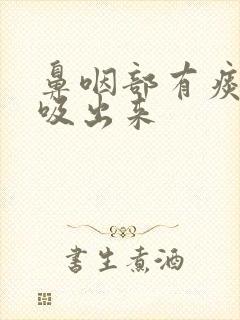 鼻咽部有痰
吸出来
书生煮酒